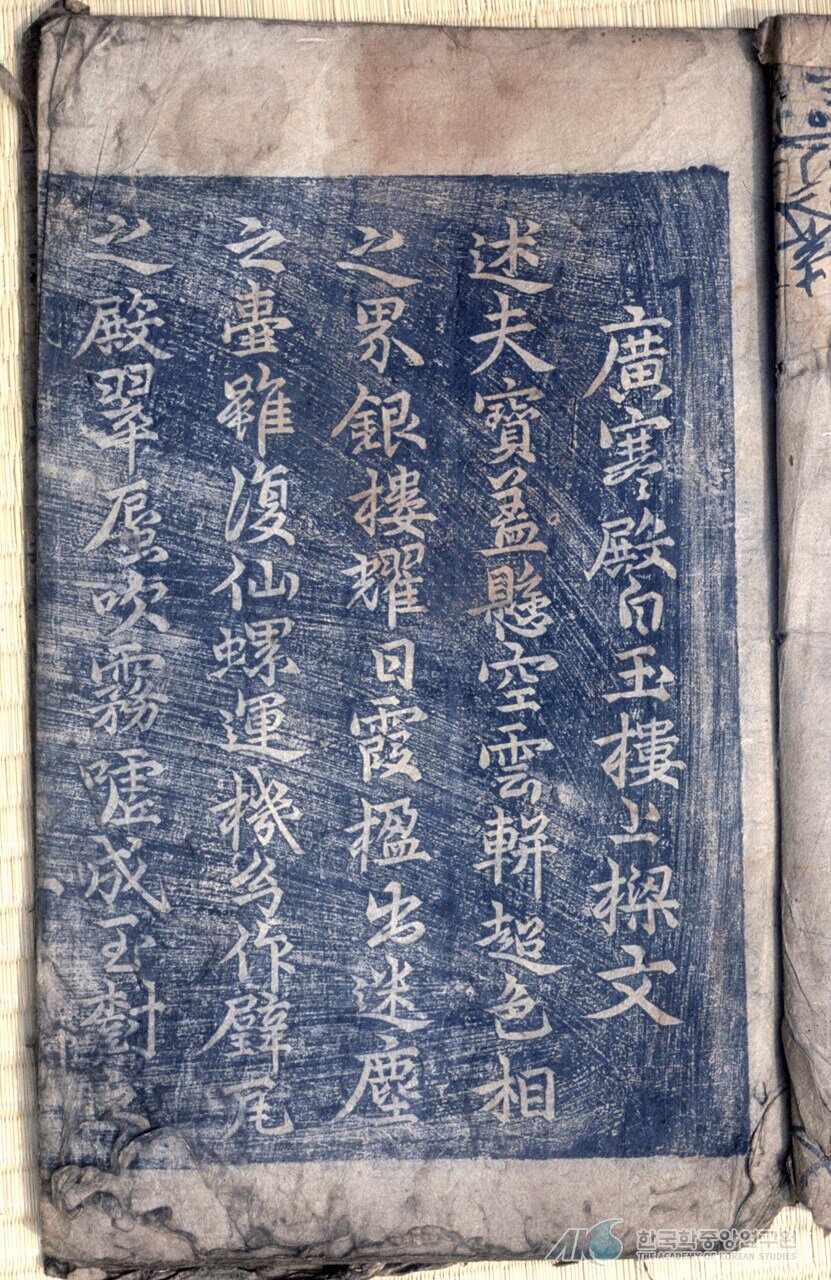 廣寒殿白玉樓上樑文
述夫寶盖懸空雲輧超色相
之界銀樓耀日霞楹出迷塵
之臺雖復仙螺運機幻作璧瓦
之殿翠蜃吹霧噓成玉樹之
한국학중앙연구원
THE ACADEMY OF KOREAN STUDIES